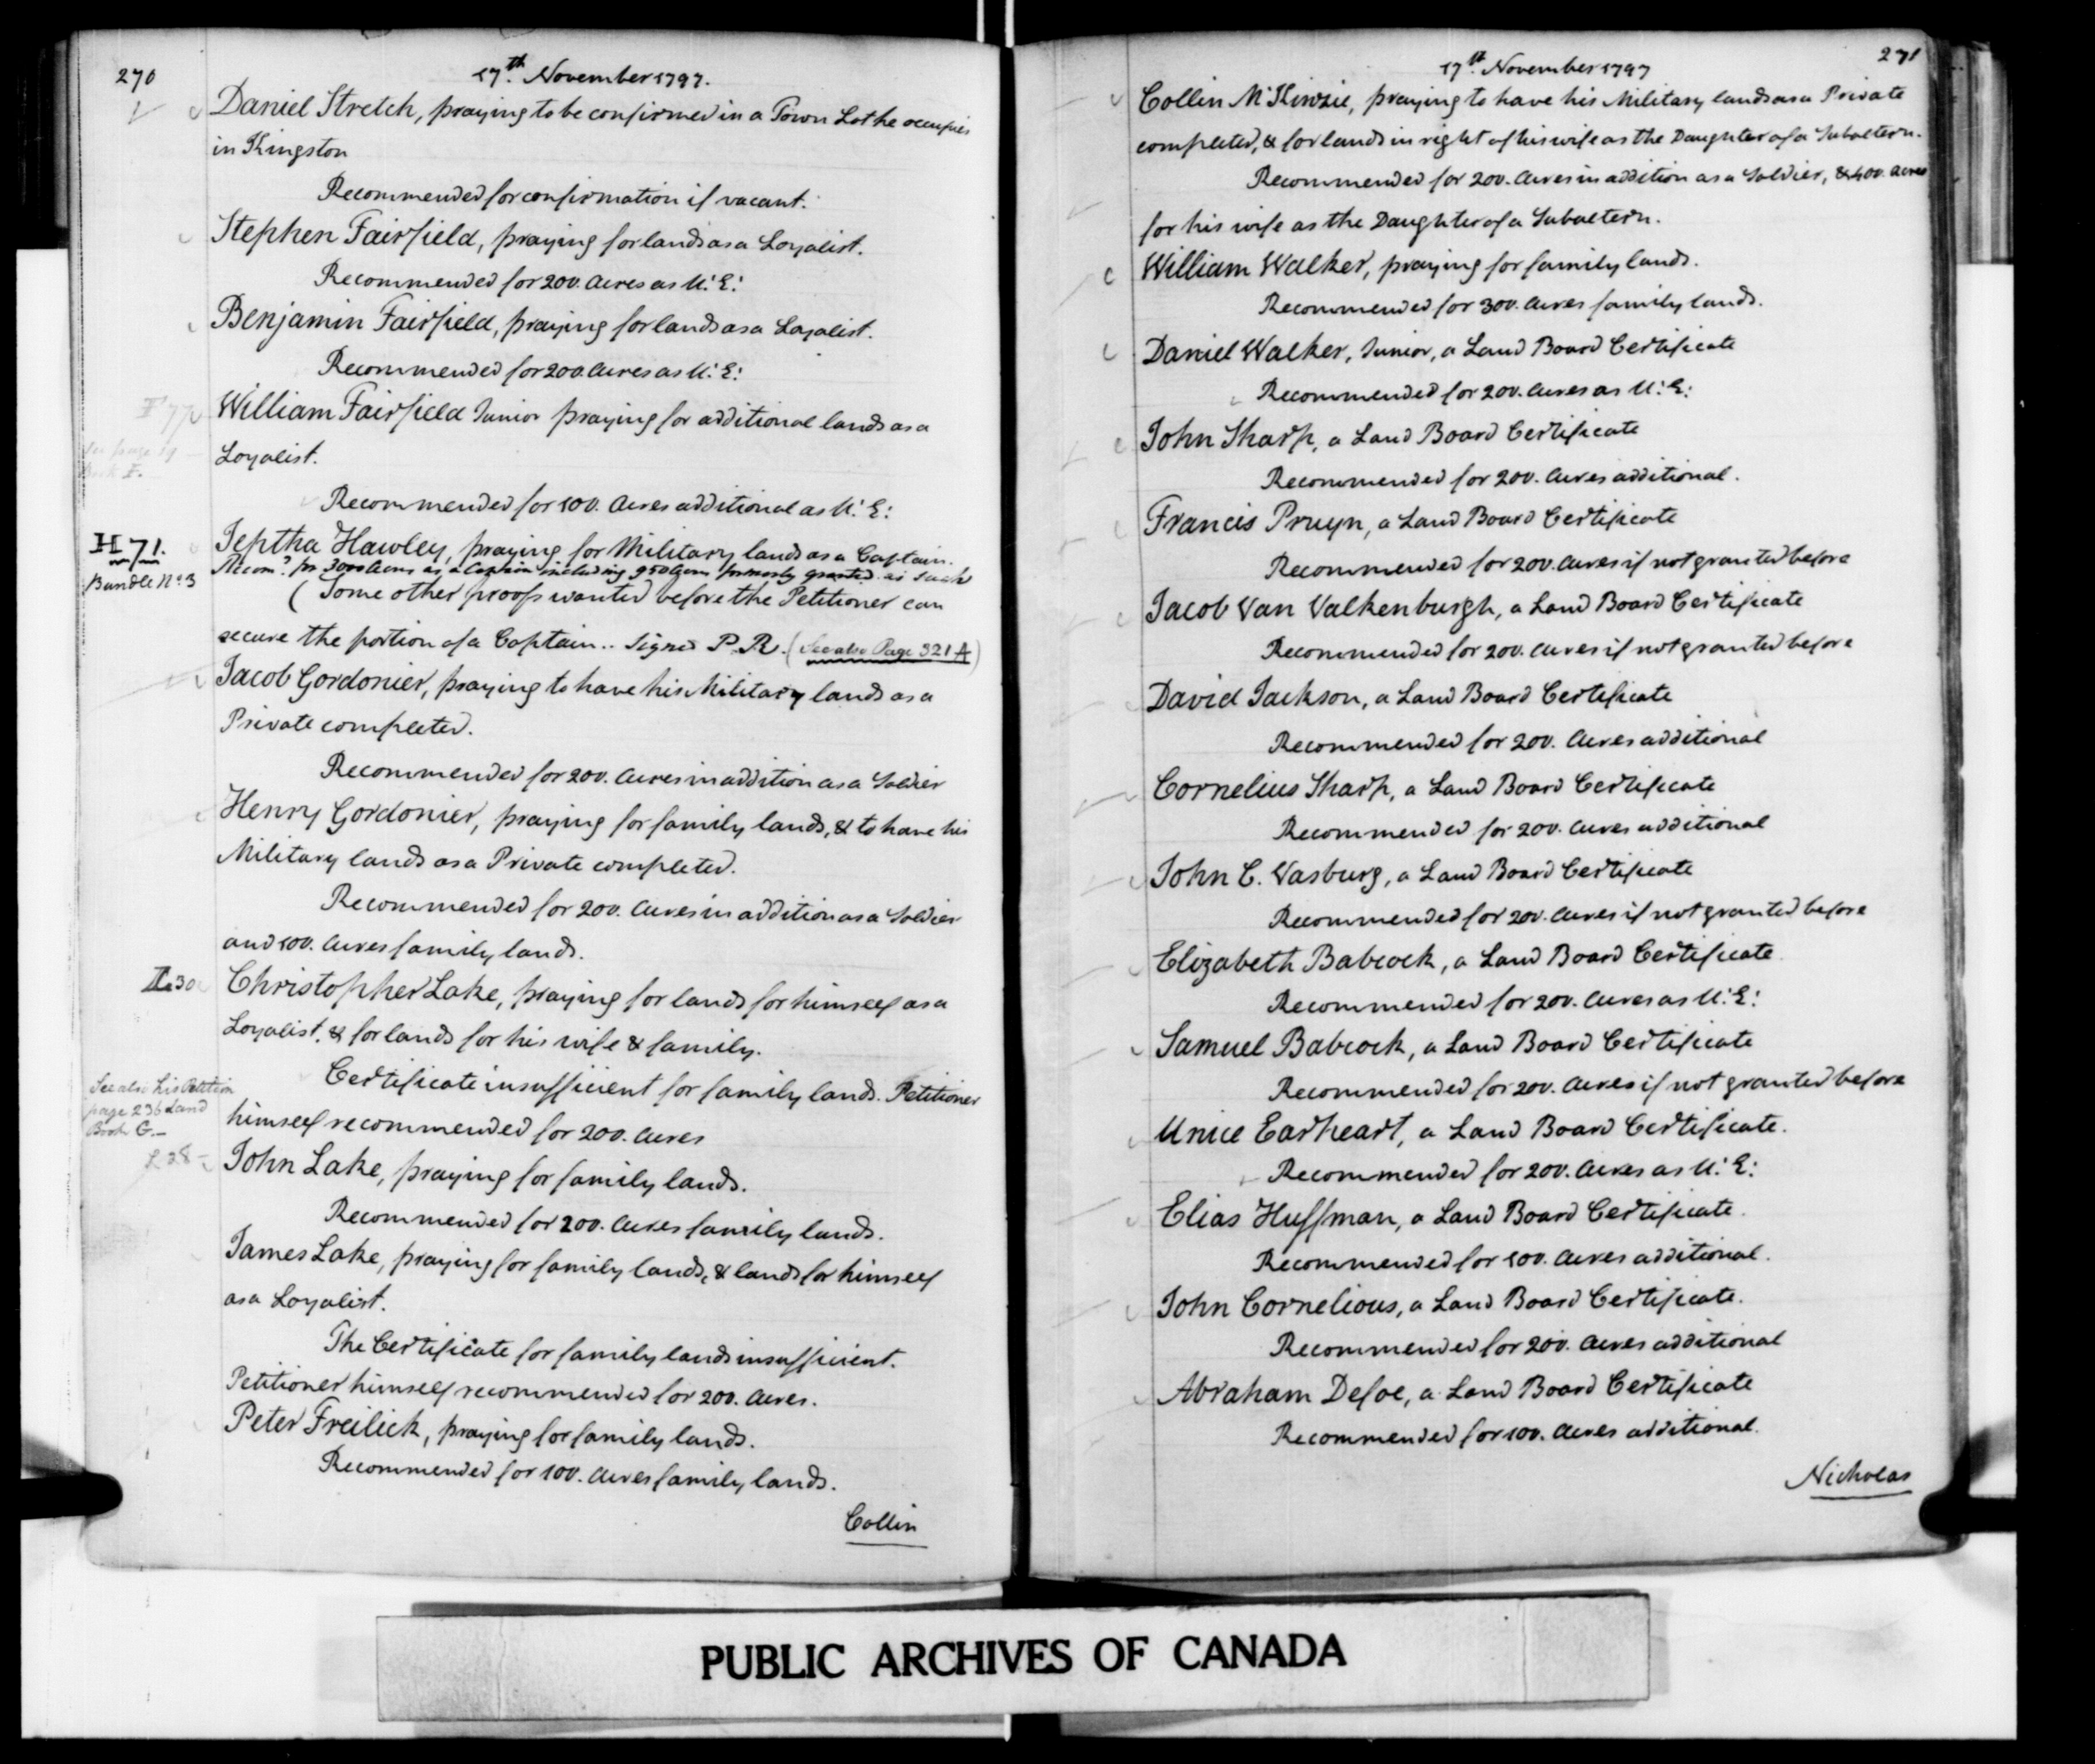 270
17th November 1797.
Daniel Stretch, praying to be confirmed in a Town Lot he occupies
in Kingston
Recommended for confirmation if vacant.
Stephen Fairfield, praying for lands as a Loyalist.
Recommended for 200. Acres as U:E:
Benjamin Fairfield, praying for lands as a Loyalist.
Recommended for 200. Acres as U:E:
F 77
William Fairfield Junior praying for additional lands as a
Loyalist.
Recommended for 100. Acres additional as U:E:
H 71.
Bundle No 3
Jeptha Hawley, praying for Military lands as a Captain.
Recomd for 3000 Acres as a Captain including 950 Acres formerly granted as such
(Some other proofs wanted before the Petitioner can
secure the portion of a Captain.. Signed P.R. (See also Page 321 A)
Jacob Gordonier, praying to have his Military lands as a
Private completed.
Recommended for 200. Acres in addition as a Soldier
Henry Gordonier, praying for family lands, & to have his
Military lands as a Private completed.
Recommended for 200. Acres in addition as a Soldier
and 100. Acres family lands.
L 30
Christopher Lake, praying for lands for himself as a
Loyalist, & for lands for his wife & family.
Certificate insufficient for family lands. Petitioner
himself recommended for 200. Acres
See also his Petition
page 236 Land
Book G.-
L 28-
John Lake, praying for family lands.
Recommended for 200. Acres family lands.
James Lake, praying for family lands, & lands for himself
as a Loyalist.
The Certificate for family lands insufficient.
Petitioner himself recommended for 200. Acres.
Peter Freilick, praying for family lands.
Recommended for 100. Acres family lands.
Collin
271
17th November 1797
Collin McKinzie, praying to have his Military lands as a Private
completed, & for lands in right of his wife as the Daughter of a Subaltern.
Recommended for 200. Acres in addition as a Soldier, & 400. Acres
for his wife as the Daughter of a Subaltern.
William Walker, praying for family lands.
Recommended for 300. Acres family lands.
Daniel Walker, Junior, a Land Board Certificate
Recommended for 200. Acres as U:E:
John Sharp, a Land Board Certificate
Recommended for 200. Acres additional.
Francis Pruyn, a Land Board Certificate
Recommended for 200. Acres if not granted before
Jacob Van Valkenburgh, a Land Board Certificate
Recommended for 200. Acres if not granted before
David Jackson, a Land Board Certificate
Recommended for 200. Acres additional
Cornelius Sharp, a Land Board Certificate
Recommended for 200. Acres additional
John C. Vasburg, a Land Board Certificate
Recommended for 200. Acres if not granted before
Elizabeth Babcock, a Land Board Certificate
Recommended for 200. Acres as U:E:
Samuel Babcock, a Land Board Certificate
Recommended for 200. Acres if not granted before
Unice Earheart, a Land Board Certificate.
Recommended for 200. Acres as U:E:
Elias Huffman, a Land Board Certificate.
Recommended for 100. Acres additional.
John Cornelious, a Land Board Certificate.
Recommended for 200. Acres additional
Abraham Defoe, a Land Board Certificate
Recommended for 100. Acres additional.
Nicholas
PUBLIC ARCHIVES OF CANADA